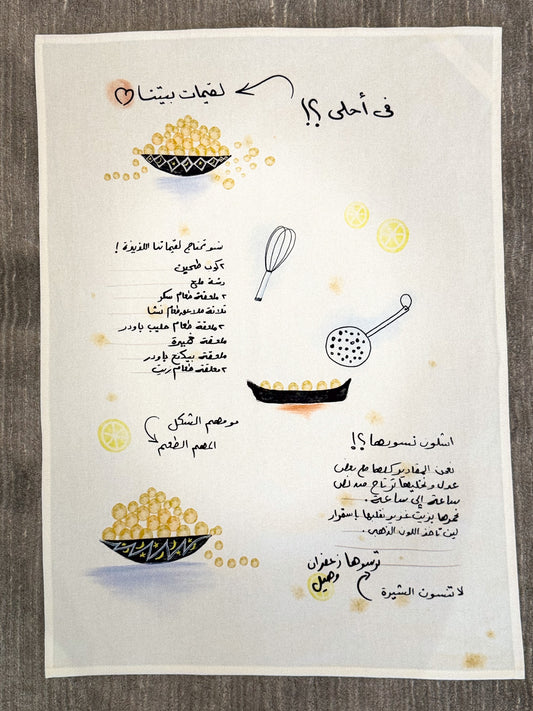 في أحلى ؟؟!
لقيمات بيتنا
شو تحتاج لقيماتنا اللذيذة !
٢ كوب طحين
رشة ملح
٢ ملعقة طعام سكر
ثلاثة ملاعق طعام نشا
٢ ملعقة طعام حليب باودر
ملعقة خميرة
ملعقة بيكنج باودر
٢ معلقة طعام زيت
مو مهم الشكل
المهم الطعم
اشلون نسويها ؟!
نعجن المقادير كلها مع بعض
عدل و نخليها ترتاح من نص
ساعة إلى ساعة .
نحمرها بزيت غزير نقلبها بإستمرار
لين تاخذ اللون الذهبي .
ترسوها زعفران
وهيل
لا تنسون الشيرة